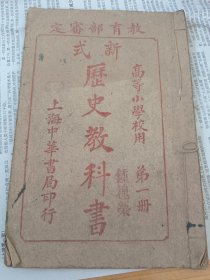 教育部審定
新式
高等小學校用
第一册
歷史教科書
上海中華書局印行